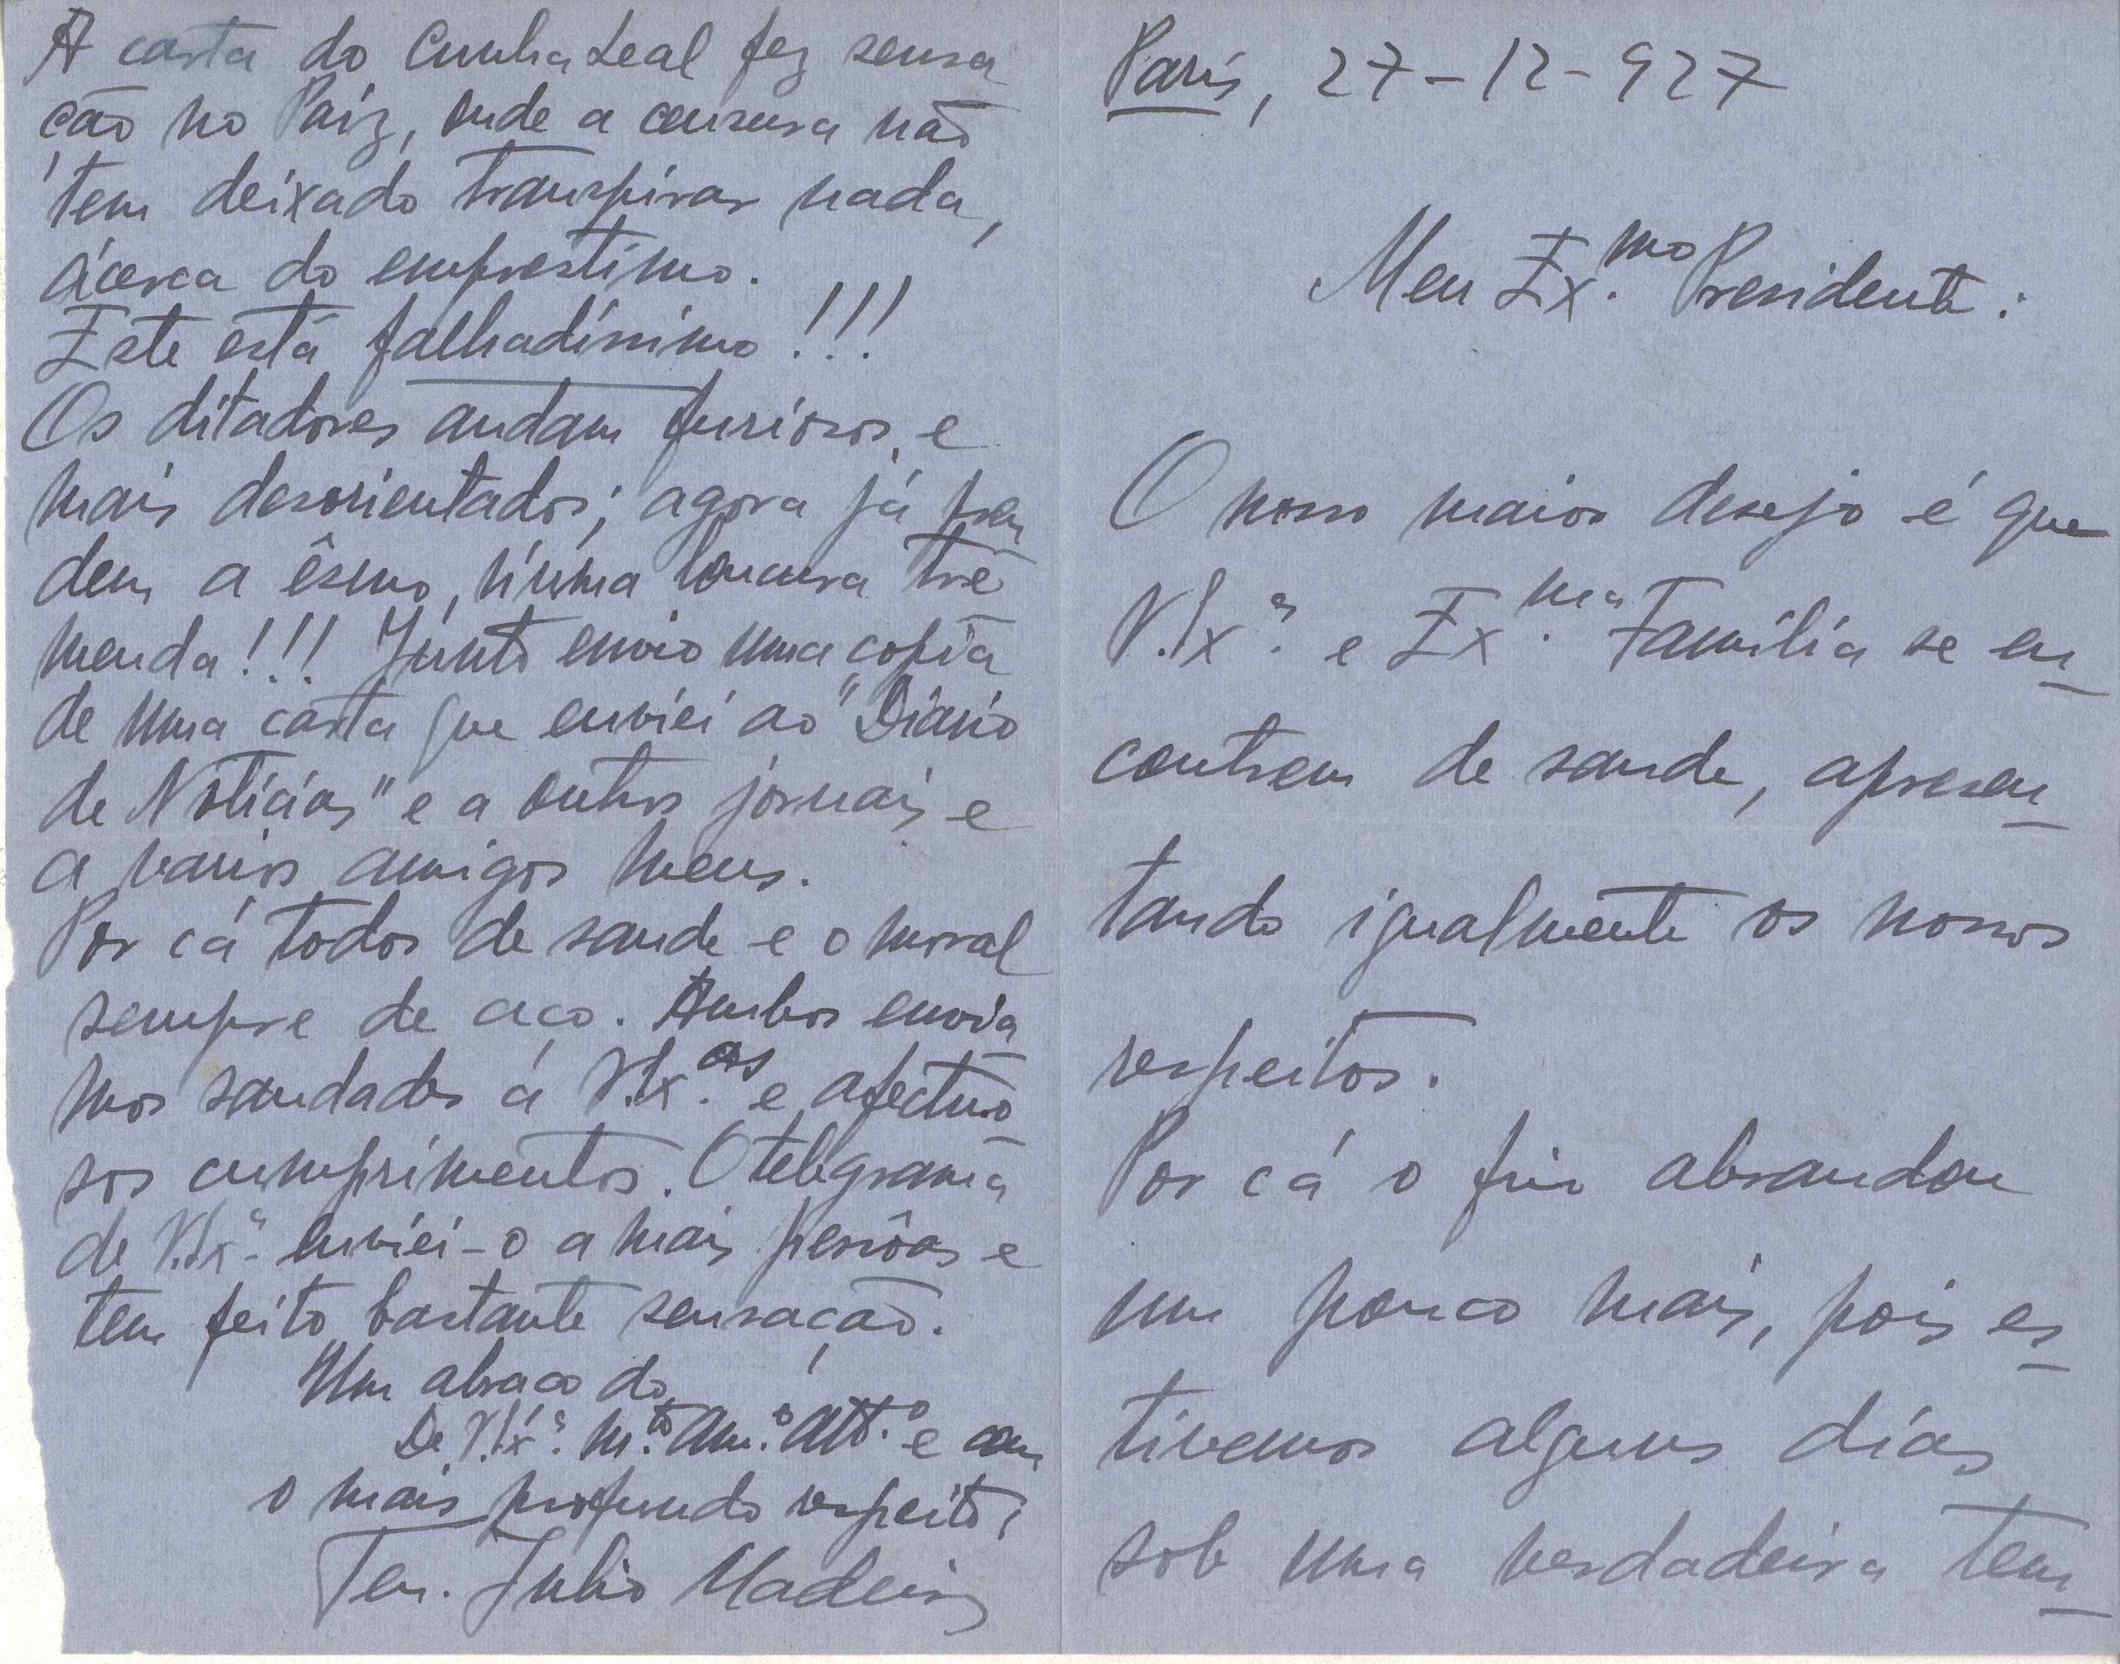 París, 27-12-927
Meu Ex.mo Presidente:
O nosso maior desejo é que
V. Ex.ª e Ex.ma Família se en_
contrem de saude, apresen_
tando igualmente os nossos
respeitos.
Por cá o frio abrandou
um pouco mais, pois es_
tivemos alguns días
sob uma verdadeira tem_
A carta do Cunha Leal fez sensa
ção no Paíz, onde a censura não
tem deixado transpirar nada,
ácerca do emprestimo.
Este está falhadíssimo!!!
Os ditadores andam furiosos, e
mais desorientados; agora já pren
dem a êsmo, núma loucura tre_
menda!!! Junto envio uma copia
de uma carta que enviei ao "Diario
de Noticias" e a outros jornais e
a varios amigos meus.
Por cá todos de saude e o moral
sempre de aço. Ambos envia_
mos saudades á V. Ex.as e afectuo_
sos cumprimentos. O telegrama
de V. Ex.ª enviei-o a mais pessôas e
tem feito bastante sensação.
Um abraço do
De V. Ex.ª m.to am.o att.o e com
o mais profundo respeito,
Ten. Julio Madeira